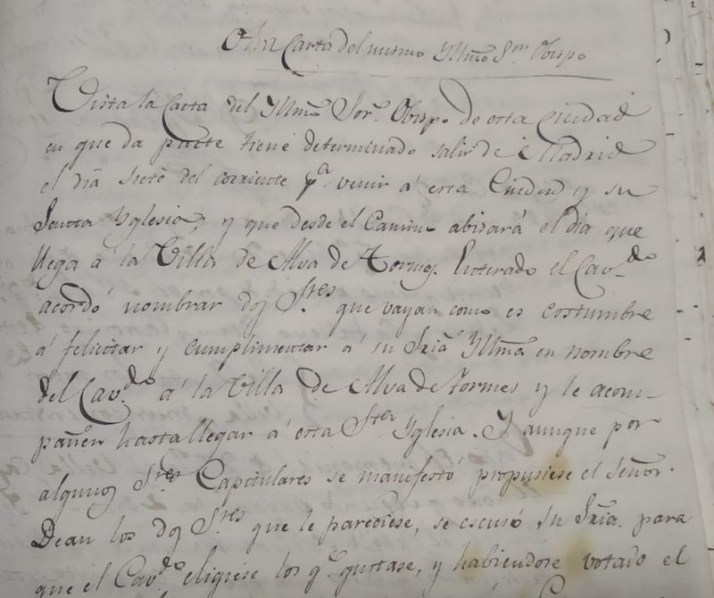 Otra Carta del mismo Yllmo Sor Obispo
Vista la Carta del Yllmo Sor. Obispo de esta Ciudad
en que da parte tiene determinado salir de Madrid
el dia siete del corriente pa venir á esta Ciudad, y su
Santa Yglesia, y que desde el Camino abisará el dia que
llega á la Villa de Alva de Tormes. Enterado el Cavdo
acordó nombrar dos Sres que vayan como es costumbre
á felicitar y cumplimentar á su Sria Yllma en nombre
del Cavdo á la Villa de Alva de Tormes y le acom-
pañen hasta llegar á esta Sta Yglesia. Y aunque por
algunos Sres Capitulares se manifestó propusiese el Señor
Dean los dos Sres que le pareciese, se escusó su Sria. para
que el Cavdo eligiese los qe gustase, y habiendose votado el